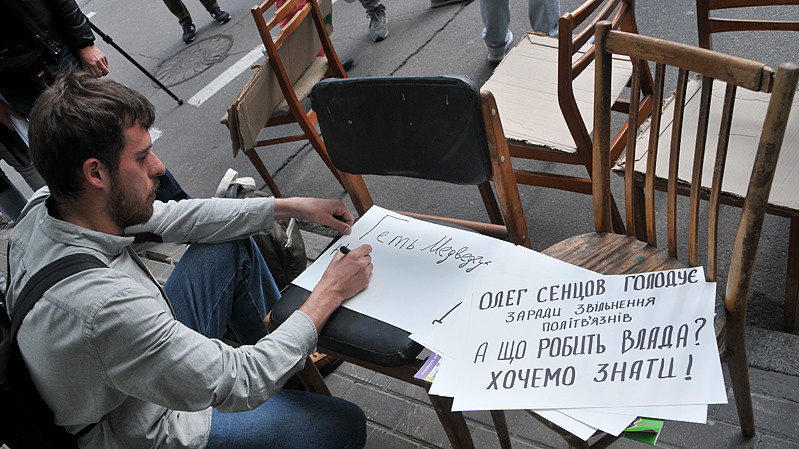 Геть Медведчука
ОЛЕГ СЕНЦОВ ГОЛОДУЄ
ЗАРАДИ ЗВІЛЬНЕННЯ
ПОЛІТВ'ЯЗНІВ
А ЩО РОБИТЬ ВЛАДА?
ХОЧЕМО ЗНАТИ!